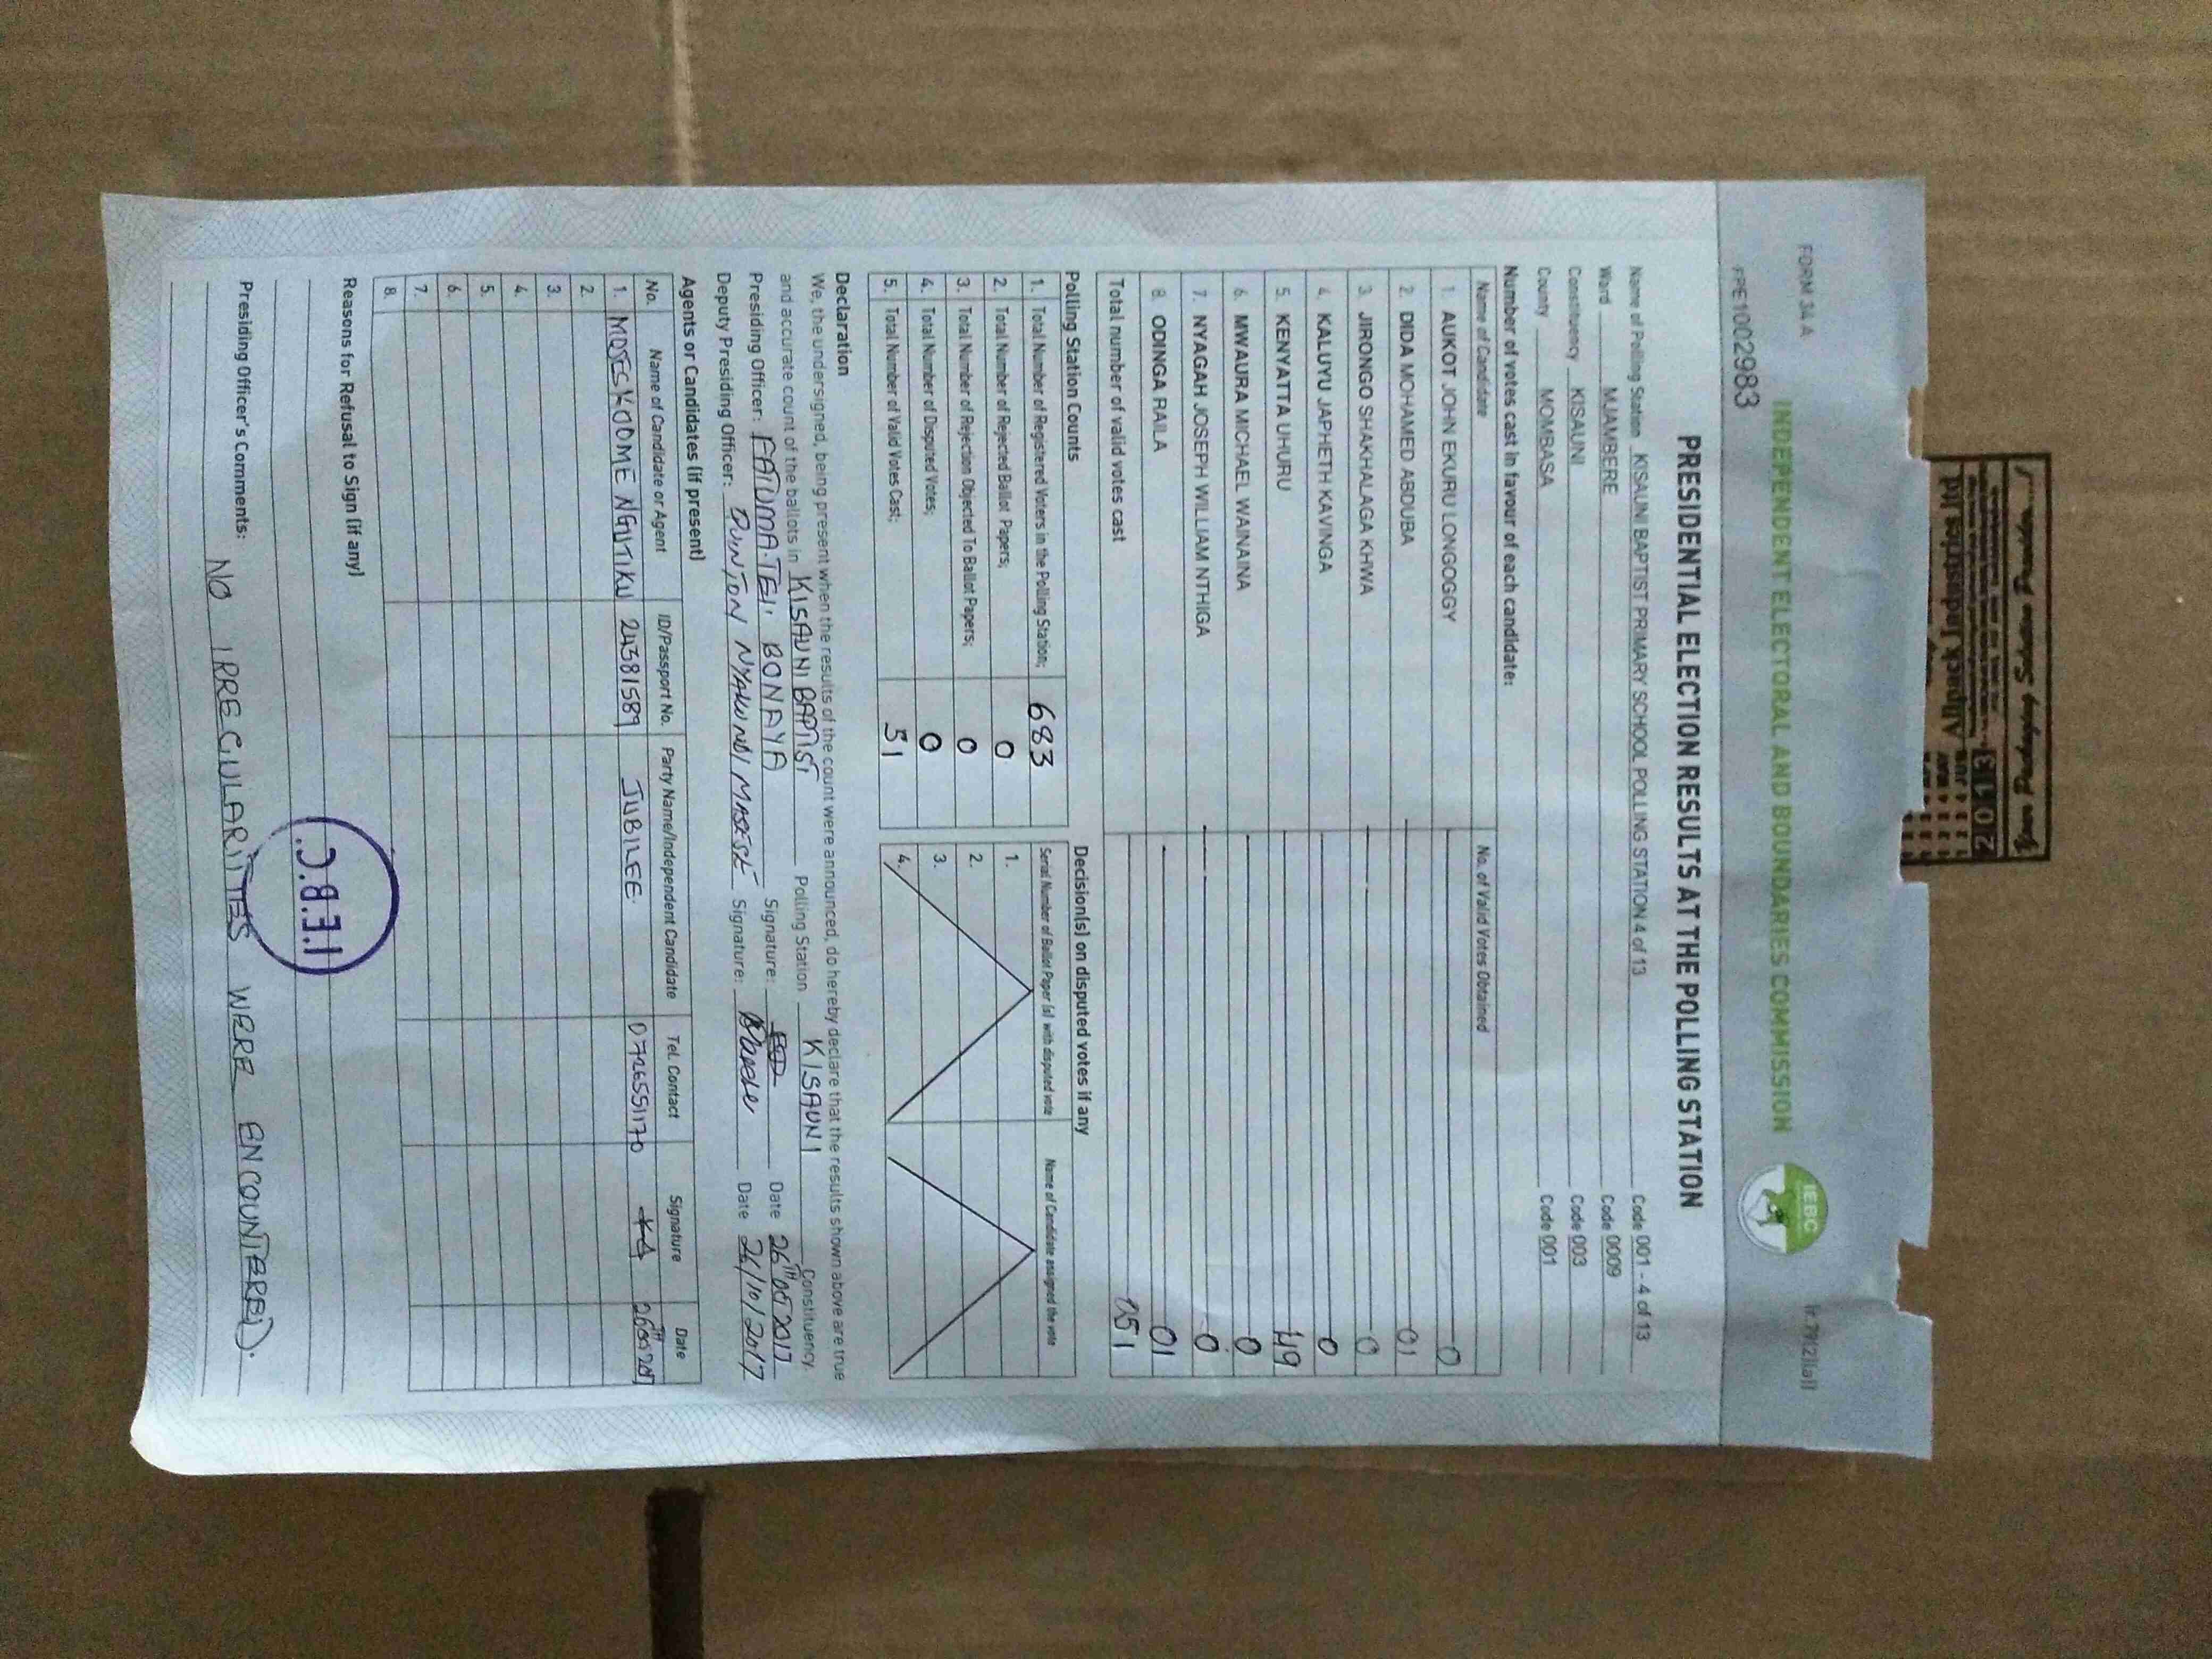 FORM 34 A
INDEPENDENT ELECTORAL AND BOUNDARIES COMMISSION
IEBC
PPE1002983
PRESIDENTIAL ELECTION RESULTS AT THE POLLING STATION
Name of Polling Station KISAUNI BAPTIST PRIMARY SCHOOL POLLING STATION 4 of 13 Code 001 - 4 of 13
Ward MJAMBERE Code 0009
Constituency KISAUNI Code 003
County MOMBASA Code 001
Number of votes cast in favour of each candidate:
Name of Candidate No. of Valid Votes Obtained
1. AUKOT JOHN EKURU LONGOGGY 0
2. DIDA MOHAMED ABDUBA 01
3. JIRONGO SHAKHALAGA KHWA 0
4. KALUYU JAPHETH KAVINGA 0
5. KENYATTA UHURU 49
6. MWAURA MICHAEL WAINAINA 0
7. NYAGAH JOSEPH WILLIAM NTHIGA 0
8. ODINGA RAILA 01
Total number of valid votes cast 051
Polling Station Counts
1. Total Number of Registered Voters in the Polling Station; 683
2. Total Number of Rejected Ballot Papers; 0
3. Total Number of Rejection Objected To Ballot Papers; 0
4. Total Number of Disputed Votes; 0
5. Total Number of Valid Votes Cast; 51
Decision(s) on disputed votes if any
Serial Number of Ballot Paper (s) with disputed vote Name of Candidate assigned the vote
1.
2.
3.
4.
Declaration
We, the undersigned, being present when the results of the count were announced, do hereby declare that the results shown above are true
and accurate count of the ballots in KISAUNI BAPTIST Polling Station KISAUNI Constituency.
Presiding Officer: FATUMA TEII BONAYA Signature: Date 26TH OCT 2017
Deputy Presiding Officer: DUNTON NYAKUNDI MASESE Signature: Date 26/10/2017
Agents or Candidates (if present)
No. Name of Candidate or Agent ID/Passport No. Party Name/Independent Candidate Tel. Contact Signature Date
1. MOSES KOOME 24381589 JUBILEE. 0726551170
2.
3.
4.
5.
6.
7.
8.
Reasons for Refusal to Sign (if any)
I.E.B.C.
Presiding Officer's Comments:
NO IRREGULARITIES WERE ENCOUNTERED.
Allpack Industries Ltd